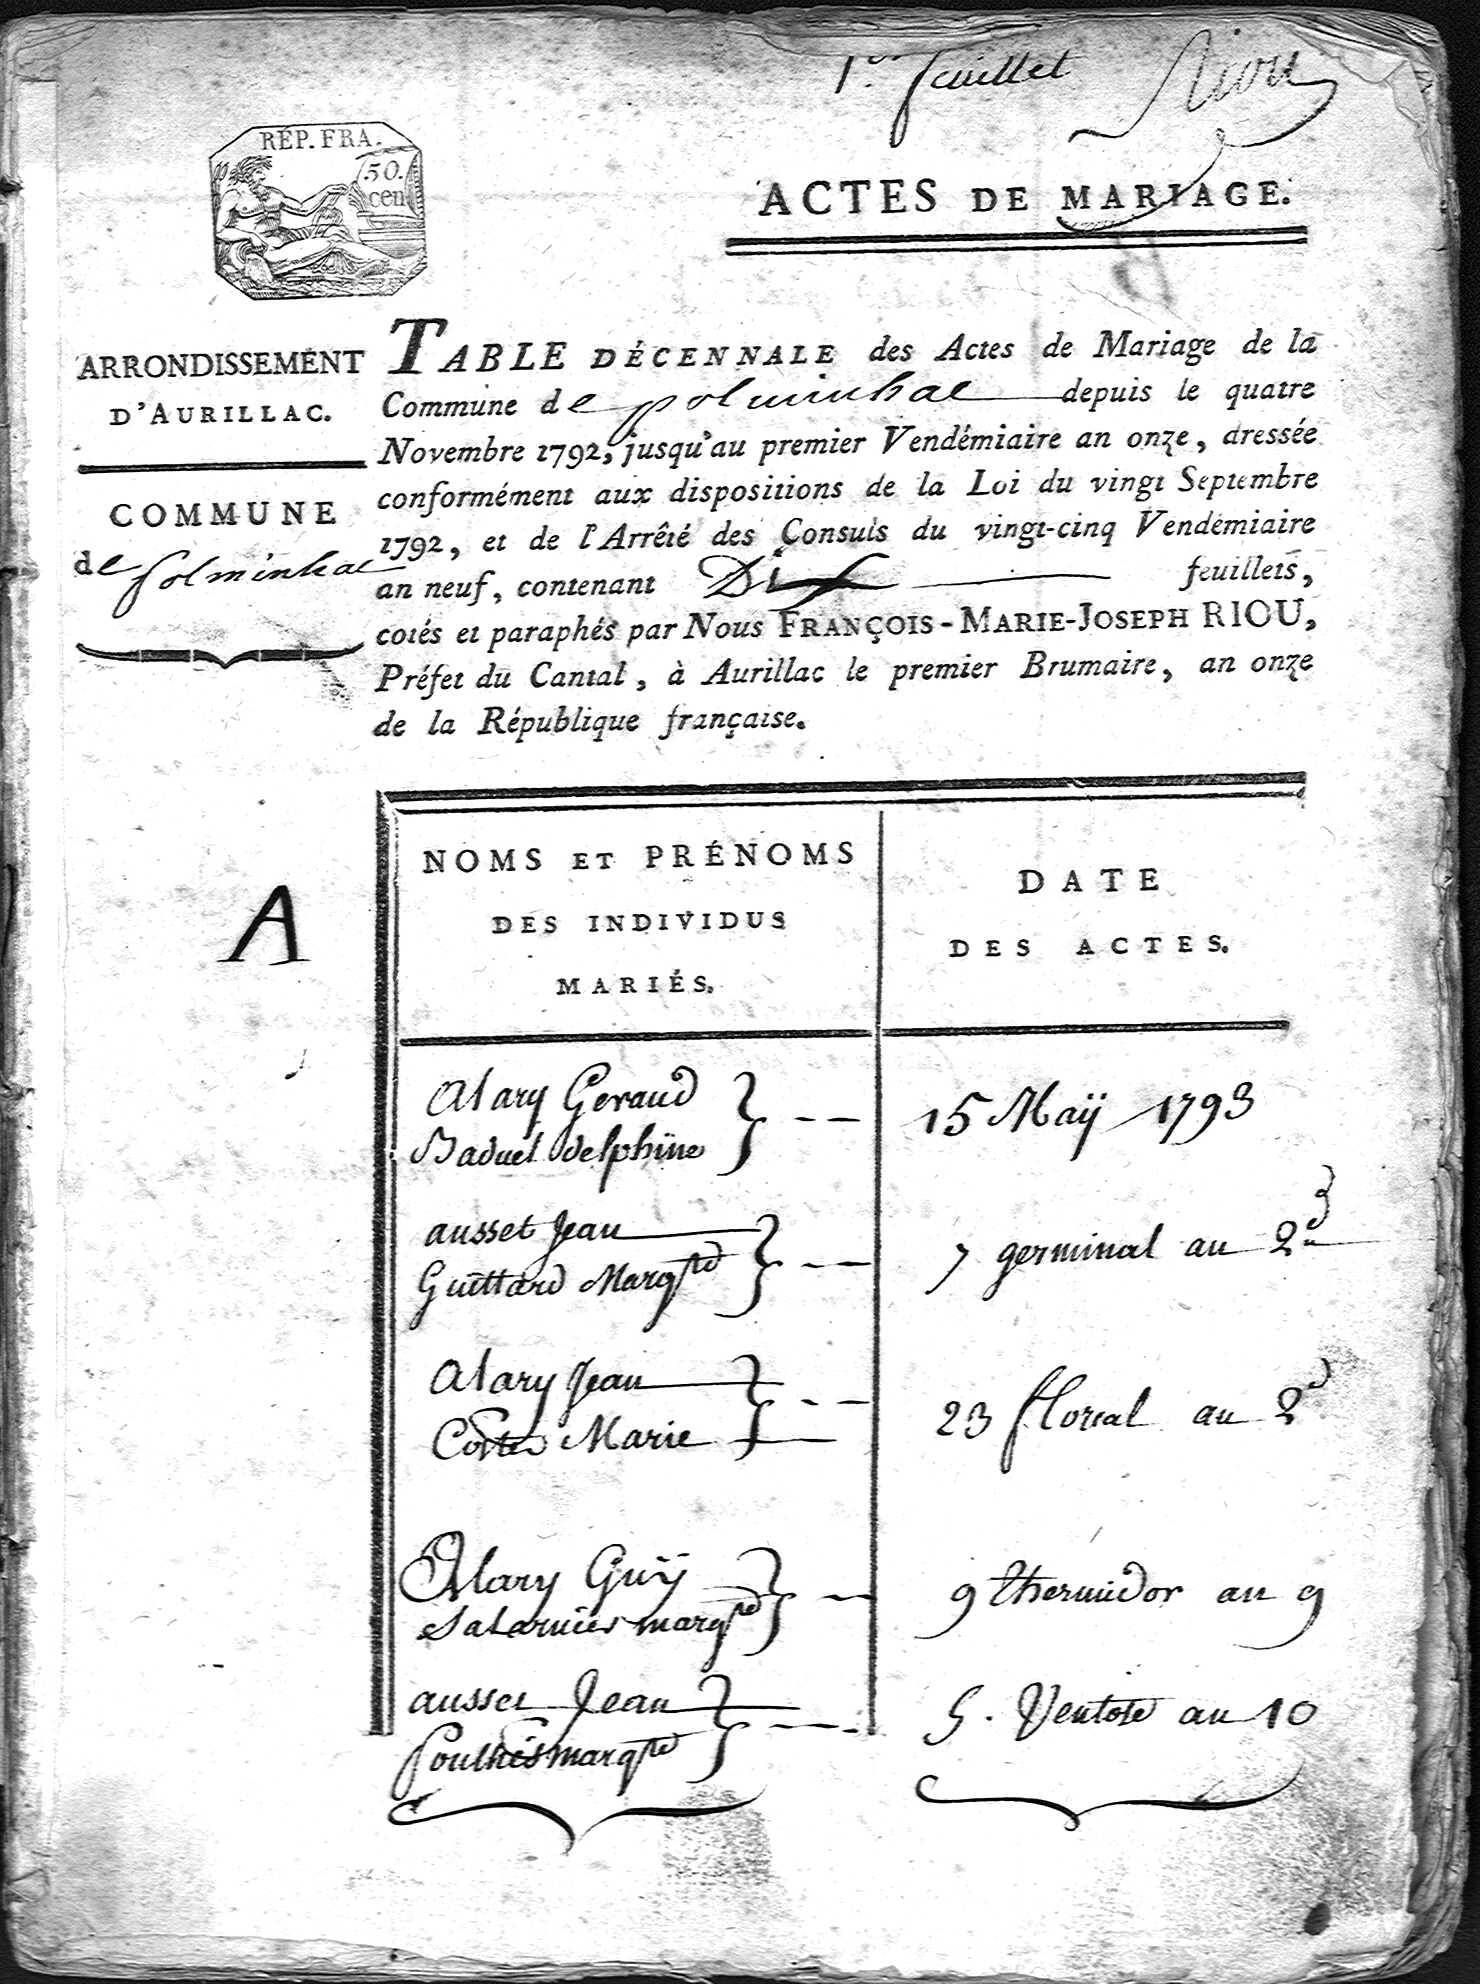 1er feuillet Riou
REP. FRA.
50.
cen
ACTES DE MARIAGE.
ARRONDISSEMENT
D'AURILLAC.
COMMUNE
de polminhac
TABLE DÉCENNALE des Actes de Mariage de la
Commune de polminhac depuis le quatre
Novembre 1792, jusqu'au premier Vendémiaire an onze, dressée
conformément aux dispositions de la Loi du vingt Septembre
1792, et de l'Arrêté des Consuls du vingt-cinq Vendémiaire
an neuf, contenant Dix feuillets,
cotés et paraphés par Nous FRANÇOIS-MARIE-JOSEPH RIOU,
Préfet du Cantal, à Aurillac le premier Brumaire, an onze
de la République française.
A
NOMS ET PRÉNOMS
DES INDIVIDUS
MARIÉS.
DATE
DES ACTES.
Alary Geraud
Baduel delphine
15 Maÿ 1793
ausset Jean
Guittard Margte
7 germinal an 2
Alary Jean
Coste Marie
23 floreal an 2
Alary Guÿ
Salarnier margte
9 thermidor an 9
ausset Jean
Poulhès margte
5. Ventose an 10